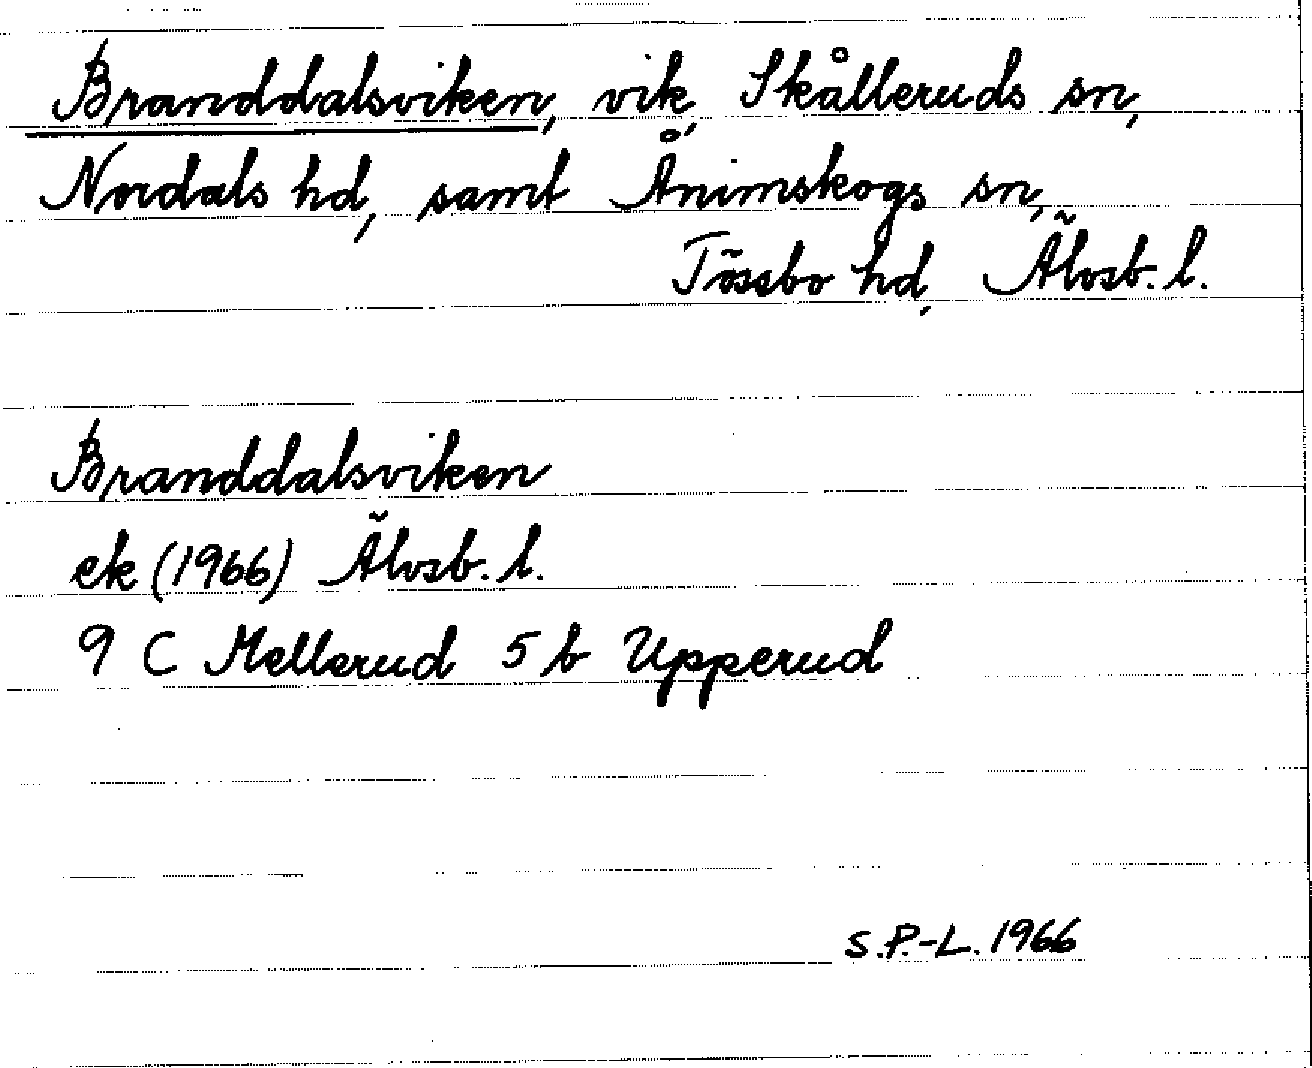 Branddalsviken, vik, Skålleruds sn,
Nordals hd, samt Ånimskogs sn,
Tössbo hd, Älvsb. l.
Branddalsviken
ek (1966) Älvsb. l.
9 C Mellerud 5 b Upperud
S.P.-L. 1966